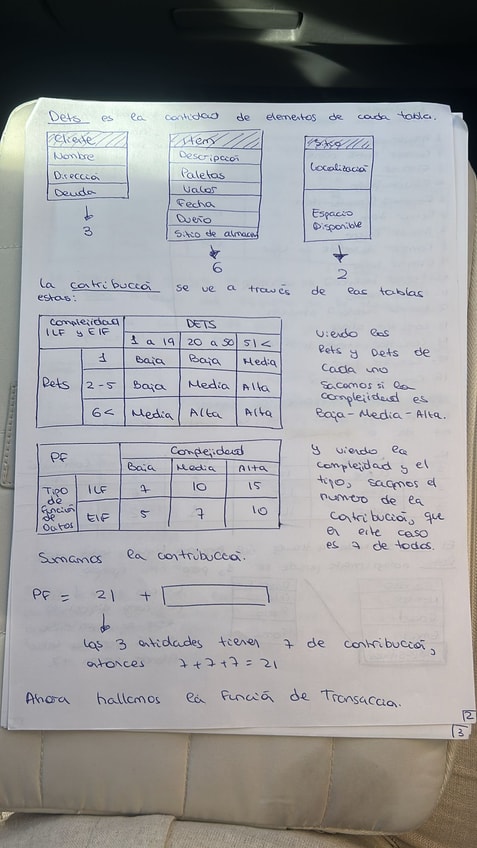 Dets es la cantidad de elementos de cada tabla.
Cliente
Nombre
Dirección
Deuda
3
Item
Descripción
Paletas
Valor
Fecha
Dueño
Sitio de almacén
6
Localización
Espacio
Disponible
2
La contribución se ve a través de las tablas
estas:
Complejidad
ILF y EIF
DETS
1 a 19 20 a 50 51<
Rets
1 Baja Baja Media
2-5 Baja Media Alta
6< Media Alta Alta
Viendo los
Rets y Dets de
cada uno
sacamos si la
complejidad es
Baja-Media-Alta.
PF
Complejidad
Baja Media Alta
Tipo
de
Función
de Datos
ILF 7 10 15
EIF 5 7 10
Y viendo la
complejidad y el
tipo, sacamos el
numero de la
contribución, que
en este caso
es 7 de todos.
Sumamos la contribución.
PF = 21 +
Las 3 entidades tienen 7 de contribución,
entonces 7+7+7=21
Ahora hallamos la Función de Transacción.
2
3